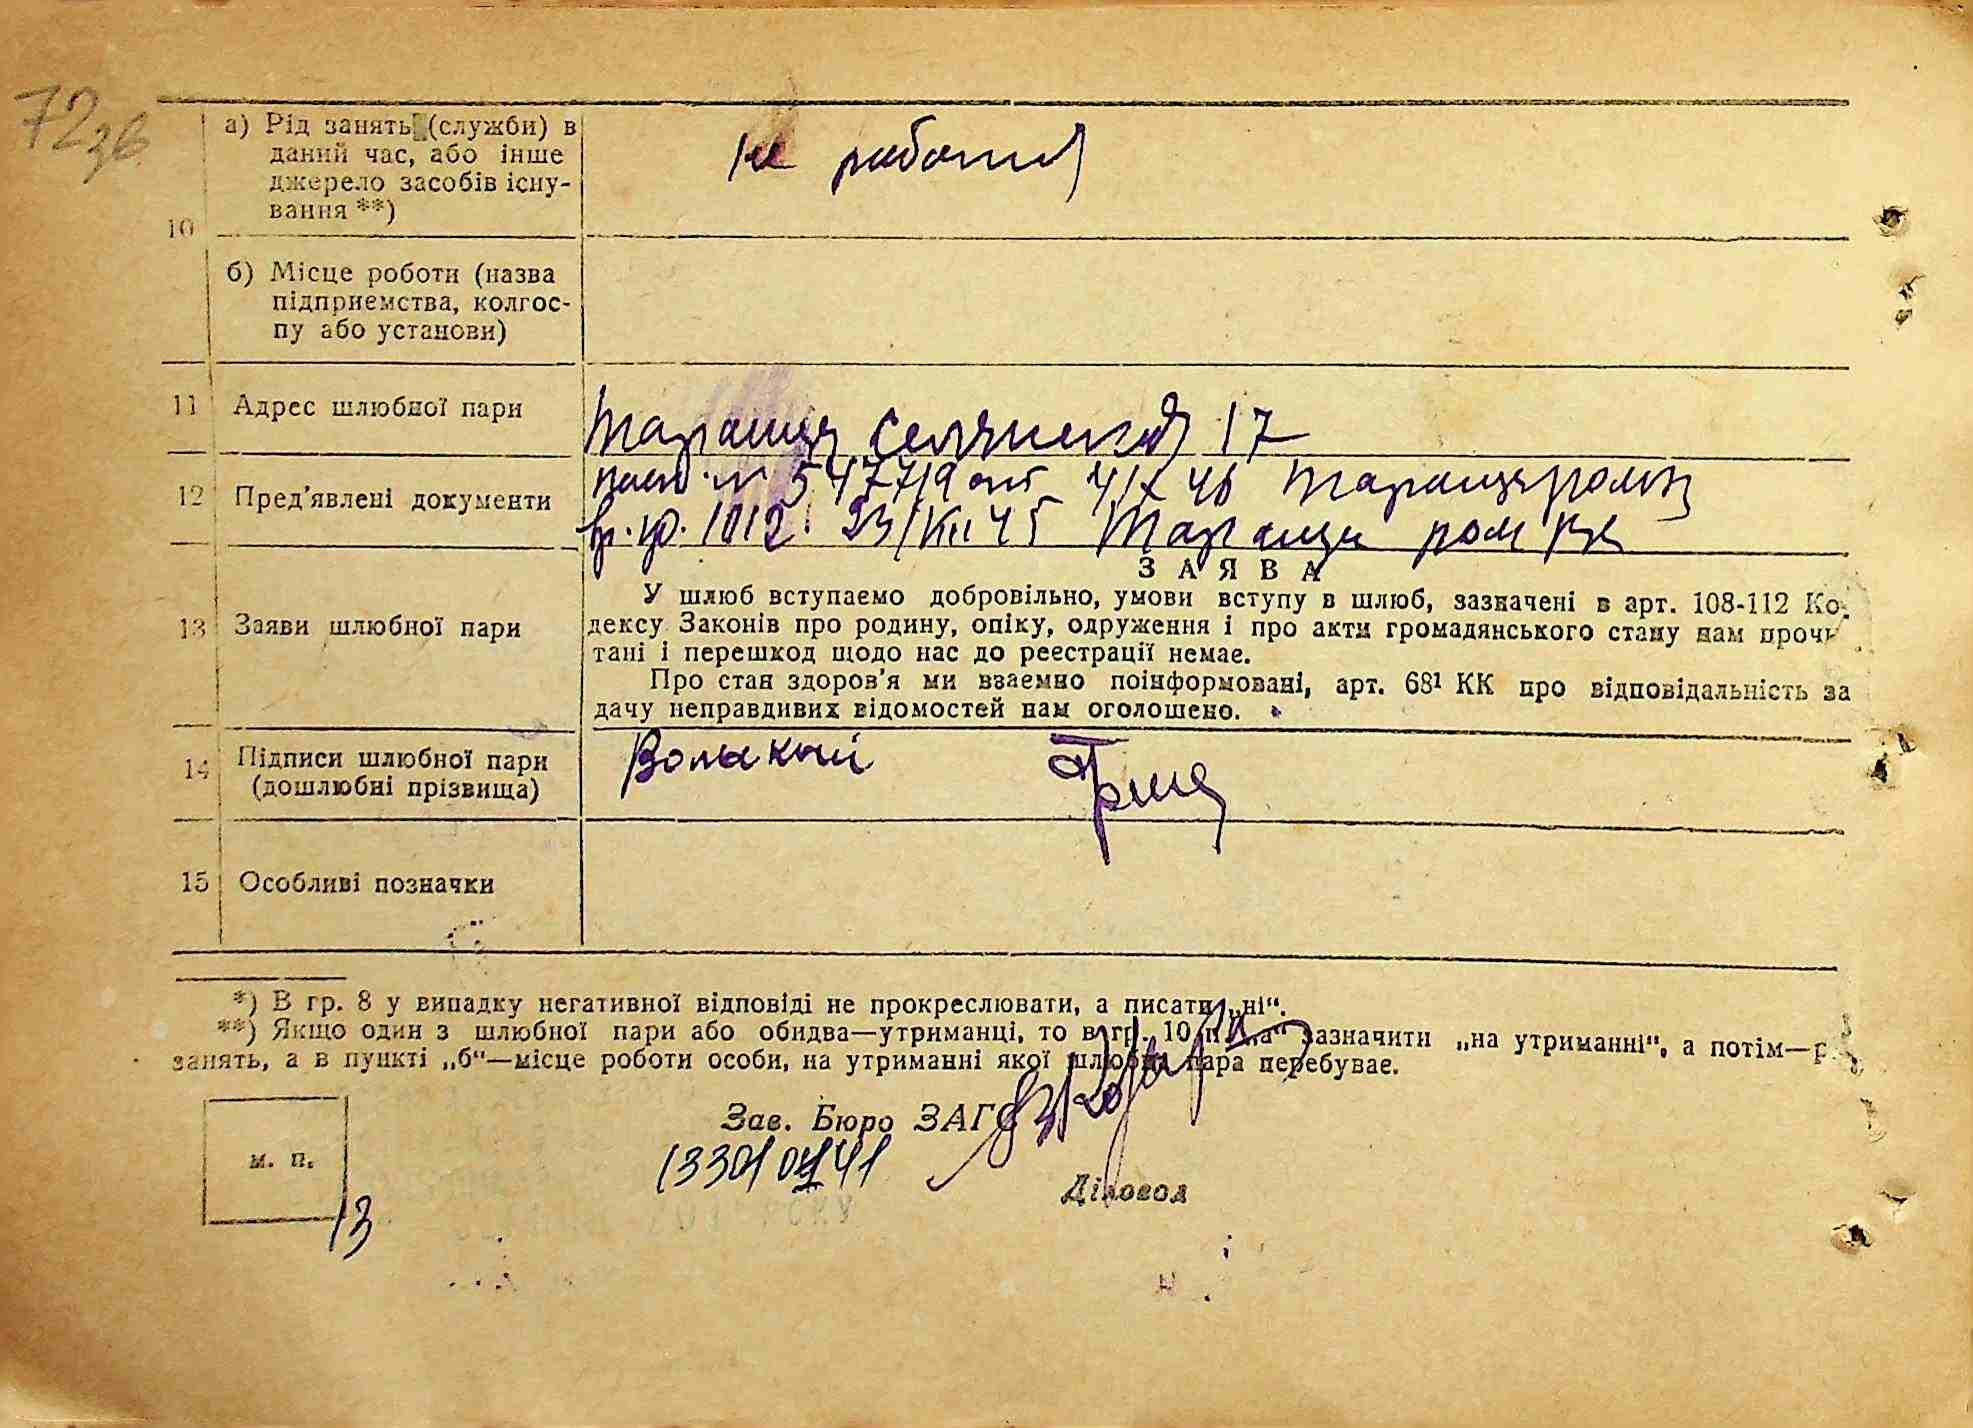 72зв
а) Рід занять (служби) в
даний час, або інше
джерело засобів існу-
вання **)
не работа
10
б) Місце роботи (назва
підприємства, колгос-
пу або установи)
11 Адрес шлюбної пари
Тараща Селянская 17
12 Пред'явлені документи
пасп. № 547719 от 4/X 46
1012. 23/ 45 Тараща
ЗАЯВА
13 Заяви шлюбної пари
У шлюб вступаємо добровільно, умови вступу в шлюб, зазначені в арт. 108-112 Ко-
дексу Законів про родину, опіку, одруження і про акти громадянського стану нам прочи
тані і перешкод щодо нас до реєстрації немає.
Про стан здоров'я ми взаємно поінформовані, арт. 68¹ КК про відповідальність за
дачу неправдивих відомостей нам оголошено.
14 Підписи шлюбної пари
(дошлюбні прізвища)
15 Особливі позначки
*) В гр. 8 у випадку негативної відповіді не прокреслювати, а писати „ні“.
**) Якщо один з шлюбної пари або обидва—утриманці, то в гр. 10 п. „а“ зазначити „на утриманні“, а потім—р
занять, а в пункті „б“—місце роботи особи, на утриманні якої шлюбна пара перебуває.
Зав. Бюро ЗАГС
м. п.
Діловод
13